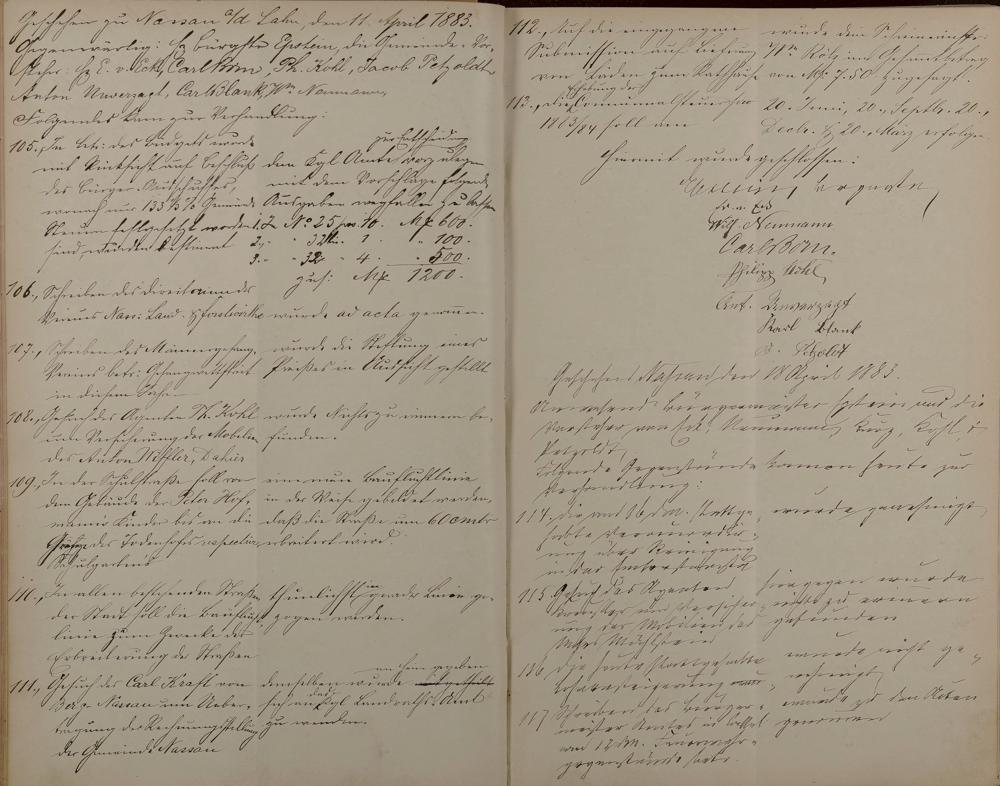 Geschehen zu Nassau a/d Lahn, den 11. April 1883.
Gegenwärtig: H. Bürgmstr Epstein, die Gemeinde-Vor-
steher: H. E. v. Eck, Carl Born, Ph. Kohl, Jacob Petzoldt
Anton Unverzagt, Carl Blank, Wm Neumann,
Folgendes kam zur Verhandlung:
105., In betr: des Budgets wurde
mit Rücksicht auf Beschluß
des Bürger-Ausschusses,
wonach nur 133⅓ % Gemeinde
Steuern festgesetzt worden
sind, werden bestimmt
zur Entscheidung
dem Kgl Amte vorzulegen
mit dem Vorschlage folgende
Ausgaben wegfallen zu lassen
1. Z. No 25 pos. 10. Mk 600.
2. " 32 " 1. " 100.
3. " 32 " 4. " 500.
zus: Mk 1200.
106., Schreiben des Directoriums des
Vereins Nass: Land- & Forstwirthe
wurde ad acta genommen.
107., Schreiben des Männergesang-
Vereins betr: Gesangwettstreit
in dieser Sache
wurde die Stiftung eines
Preises in Aussicht gestellt
108., Gesuch des Agenten Ph. Kohl
um Versicherung der Mobilien
des Anton Wiffler, Dahier
wurde Nichts zu erinnern be-
funden.
109., In der Schulstraße soll von
dem Gebäude der Peter Hof-
mann Kinder bis an die
Grenze des Todenhofes respective
Schulgartens
eine neue Baufluchtlinie
in der Weise gebildet werden,
daß die Straße um 60 cmtr
erbreitert wird.
110., In allen bestehenden Straßen
der Stadt soll die Bauflucht-
linie zum Zwecke der
Erbreiterung der Straßen
thunlichst in grader Linie ge-
zogen werden.
111., Gesuch des Carl Kraft von
Berg-Nassau um Ueber-
tragung der Rechnungsstellung
der Gemeinde Nassau
an heim gegeben
demselben wurde mitgetheilt
sich an das Kgl Landraths-Amt
zu wenden.
112., Auf die eingegangene
Submission auf Lieferung
von Läden zum Rathhause
wurde dem Schreinermstr
Wm Rötz im Gesammtbetrag
von Mk: 7.50 zugesagt.
Erhebung der
113., die Communalsteuer pro
1883/84 soll am
20. Juni, 20., Septbr. 20.,
Decbr. & 20., März erfolgen.
Hiermit wurde geschlossen:
Epstein, Bürgmstr,
E. v. Eck
Wilh. Neumann
Carl Born.
Philipp Kohl
Ant. Unverzagt
Karl Blank
J. Petzoldt
Geschehen Nassau, den 18 April 1883.
Anwesend: Bürgermeister Epstein und die
Vorsteher von Eck, Neumann, Kurz, Kohl, &
Petzoldt,
Folgende Gegenstände kamen heute zur
Verhandlung:
114. die am 16 d.M. stattge-
habte
wurde genehmigt
115 Gesuch des Agenten
um Versicher-
ung der Mobilien des
hiergegen wurde
nichts zu erinnern
gefunden
116 die heute stattgehabte
wurde nicht ge-
nehmigt
117 Schreiben des Bürger-
meister Amtes in
vom 12 d.M. Feuerwehr-
gegenstände betr.
wurde zu den Akten
genommen